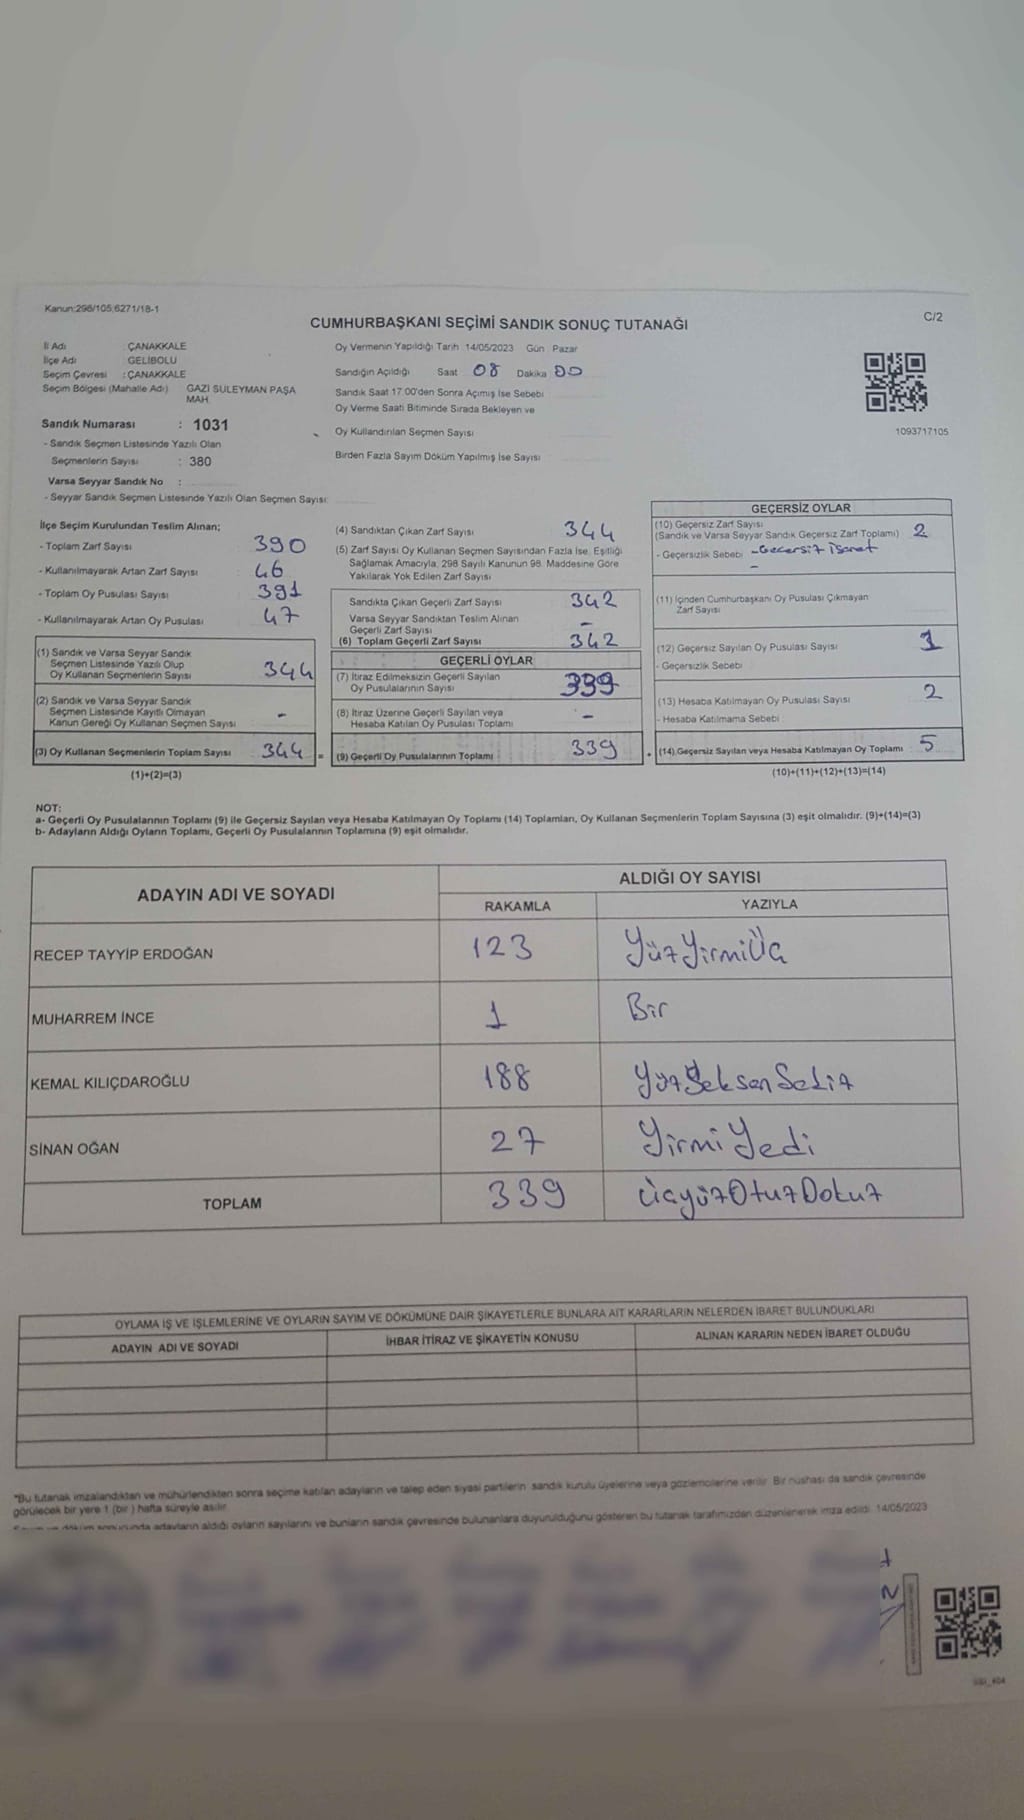 Kanun:298/105;6271/18-1
C/2
CUMHURBAŞKANI SEÇİMİ SANDIK SONUÇ TUTANAĞI
İl Adı : ÇANAKKALE
İlçe Adı : GELİBOLU
Seçim Çevresi : ÇANAKKALE
Seçim Bölgesi (Mahalle Adı) GAZİ SULEYMAN PAŞA
MAH.
Sandık Numarası : 1031
- Sandık Seçmen Listesinde Yazılı Olan
Seçmenlerin Sayısı : 380
Varsa Seyyar Sandık No :
- Seyyar Sandık Seçmen Listesinde Yazılı Olan Seçmen Sayısı:
Oy Vermenin Yapıldığı Tarih 14/05/2023 Gün Pazar
Sandığın Açıldığı Saat 08 Dakika 00
Sandık Saat 17:00'den Sonra Açımış İse Sebebi
Oy Verme Saati Bitiminde Sırada Bekleyen ve
Oy Kullandırılan Seçmen Sayısı
Birden Fazla Sayım Döküm Yapılmış İse Sayısı
1093717105
İlçe Seçim Kurulundan Teslim Alınan;
- Toplam Zarf Sayısı 390
- Kullanılmayarak Artan Zarf Sayısı 46
- Toplam Oy Pusulası Sayısı 391
- Kullanılmayarak Artan Oy Pusulası 47
(1) Sandık ve Varsa Seyyar Sandık
Seçmen Listesinde Yazılı Olup
Oy Kullanan Seçmenlerin Sayısı 344
(2) Sandık ve Varsa Seyyar Sandık
Seçmen Listesinde Kayıtlı Olmayan
Kanun Gereği Oy Kullanan Seçmen Sayısı -
(3) Oy Kullanan Seçmenlerin Toplam Sayısı 344 =
(1)+(2)=(3)
(4) Sandıktan Çıkan Zarf Sayısı 344
(5) Zarf Sayısı Oy Kullanan Seçmen Sayısından Fazla İse, Eşitliği
Sağlamak Amacıyla, 298 Sayılı Kanunun 98. Maddesine Göre
Yakılarak Yok Edilen Zarf Sayısı
Sandıkta Çıkan Geçerli Zarf Sayısı 342
Varsa Seyyar Sandıktan Teslim Alınan
Geçerli Zarf Sayısı -
(6) Toplam Geçerli Zarf Sayısı 342
GEÇERLİ OYLAR
(7) İtiraz Edilmeksizin Geçerli Sayılan
Oy Pusulalarının Sayısı 339
(8) İtiraz Üzerine Geçerli Sayılan veya
Hesaba Katılan Oy Pusulası Toplamı -
(9) Geçerli Oy Pusulalarının Toplamı 339 +
GEÇERSİZ OYLAR
(10) Geçersiz Zarf Sayısı
(Sandık ve Varsa Seyyar Sandık Geçersiz Zarf Toplamı) 2
- Geçersizlik Sebebi - Geçersiz işaret
-
(11) İçinden Cumhurbaşkanı Oy Pusulası Çıkmayan
Zarf Sayısı
(12) Geçersiz Sayılan Oy Pusulası Sayısı 1
- Geçersizlik Sebebi
(13) Hesaba Katılmayan Oy Pusulası Sayısı 2
- Hesaba Katılmama Sebebi :
(14) Geçersiz Sayılan veya Hesaba Katılmayan Oy Toplamı 5
(10)+(11)+(12)+(13)=(14)
NOT:
a- Geçerli Oy Pusulalarının Toplamı (9) ile Geçersiz Sayılan veya Hesaba Katılmayan Oy Toplamı (14) Toplamları, Oy Kullanan Seçmenlerin Toplam Sayısına (3) eşit olmalıdır. (9)+(14)=(3)
b- Adayların Aldığı Oyların Toplamı, Geçerli Oy Pusulalarının Toplamına (9) eşit olmalıdır.
ADAYIN ADI VE SOYADI ALDIĞI OY SAYISI
RAKAMLA YAZIYLA
RECEP TAYYİP ERDOĞAN 123 YüzYirmiÜç
MUHARREM İNCE 1 Bir
KEMAL KILIÇDAROĞLU 188 YüzSeksenSekiz
SİNAN OĞAN 27 YirmiYedi
TOPLAM 339 ÜçyüzOtuzDokuz
OYLAMA İŞ VE İŞLEMLERİNE VE OYLARIN SAYIM VE DÖKÜMÜNE DAİR ŞİKAYETLERLE BUNLARA AİT KARARLARIN NELERDEN İBARET BULUNDUKLARI
ADAYIN ADI VE SOYADI İHBAR İTİRAZ VE ŞİKAYETİN KONUSU ALINAN KARARIN NEDEN İBARET OLDUĞU
*Bu tutanak imzalandıktan ve mühürlendikten sonra seçime katılan adayların ve talep eden siyasi partilerin sandık kurulu üyelerine veya gözlemcilerine verilir. Bir nüshası da sandık çevresinde
görülecek bir yere 1 (bir ) hafta süreyle asılır.
sonucunda adayların aldığı oyların sayılarını ve bunların sandık çevresinde bulunanlara duyurulduğunu gösteren bu tutanak tarafımızdan düzenlenerek imza edildi. 14/05/2023